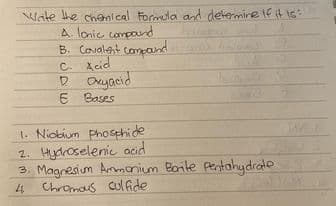 Write the chemical Formula and determine if it is:
A. Ionic compound
B. Covalent compound
C. Acid
D Oxyacid
E Bases
1. Niobium phosphide
2. Hydroselenic acid
3. Magnesium Ammonium Borite Pentahydrate
4 Chromous Sulfide